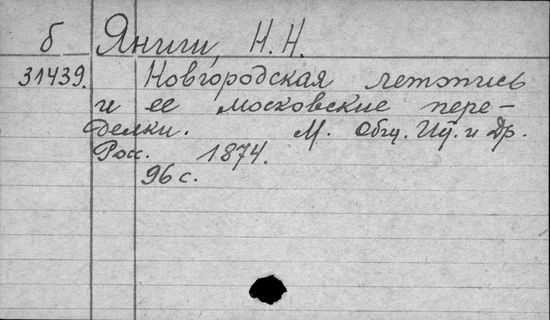 б Яниш, Н. Н.
31439. Новгородская летопись
и ее московские пере-
делки. М. Общ. Ист. и Др.
Росс. 1874.
96 с.